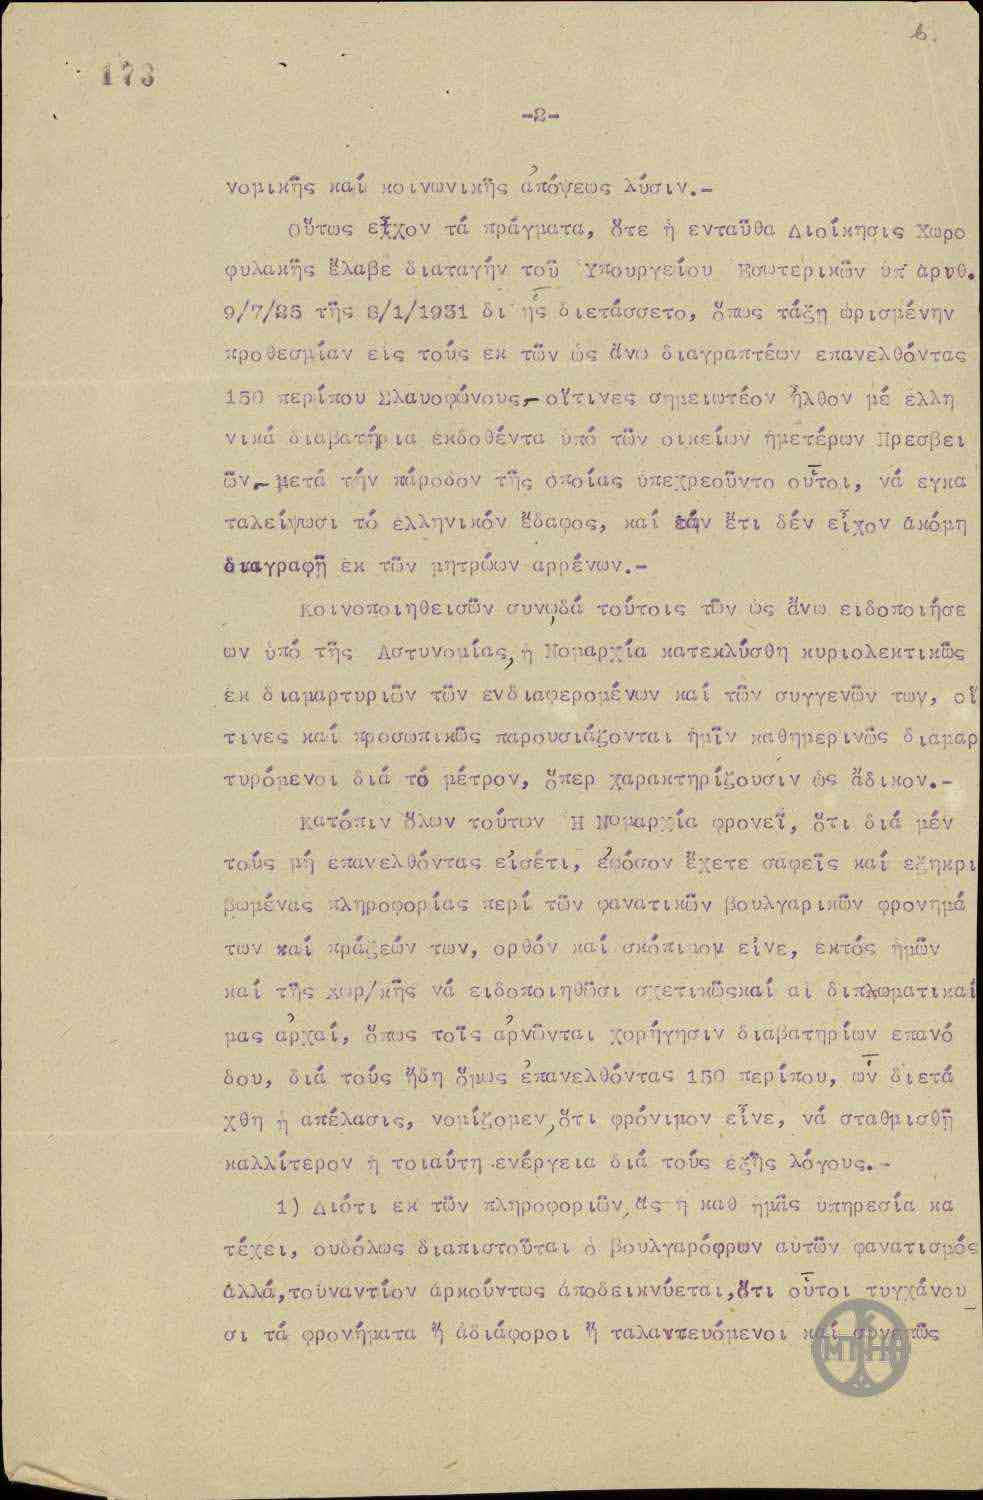 6.
173
-2-
νομικῆς καί κοινωνικῆς ἀπόψεως λύσιν.-
Οὕτως εἶχον τά πράγματα, ὅτε ἡ ενταῦθα Διοίκησις Χωρο
φυλακῆς ἔλαβε διαταγήν τοῦ Ὑπουργείου Εσωτερικῶν ὑπ' ἀριθ.
9/7/25 τῆς 8/1/1931 δι' ἧς διετάσσετο, ὅπως τάξῃ ὡρισμένην
προθεσμίαν εἰς τούς εκ τῶν ὡς ἄνω διαγραπτέων επανελθόντας
150 περίπου Σλαυοφώνους,- οἵτινες σημειωτέον ἦλθον μέ ἑλλη
νικά διαβατήρια ἐκδοθέντα ὑπό τῶν οικείων ἡμετέρων Πρεσβει
ῶν,- μετά τήν πάροδον τῆς ὁποίας ὑπεχρεοῦντο οὗτοι, νά εγκα
ταλείψωσι τό ἑλληνικόν ἔδαφος, καί ἐάν ἔτι δέν εἶχον ἀκόμη
διαγραφῇ ἐκ τῶν μητρώων αρρένων.-
Κοινοποιηθεισῶν συνῳδά τούτοις τῶν ὡς ἄνω ειδοποιήσε
ων ὑπό τῆς Αστυνομίας, ἡ Νομαρχία κατεκλύσθη κυριολεκτικῶς
ἐκ διαμαρτυριῶν τῶν ενδιαφερομένων καί τῶν συγγενῶν των, οἵ
τινες καί προσωπικῶς παρουσιάζονται ἡμῖν καθημερινῶς διαμαρ
τυρόμενοι διά τό μέτρον, ὅπερ χαρακτηρίζουσιν ὡς ἄδικον.-
Κατόπιν ὅλων τούτων Ἡ Νομαρχία φρονεῖ, ὅτι διά μέν
τούς μή ἐπανελθόντας εἰσέτι, ἐφόσον ἔχετε σαφεῖς καί εξηκρι
βωμένας πληροφορίας περί τῶν φανατικῶν βουλγαρικῶν φρονημά
των καί πράξεών των, ορθόν καί σκόπιμον εἶνε, εκτός ἡμῶν
καί τῆς χωρ/κῆς νά ειδοποιηθῶσι σχετικῶςκαί αἱ διπλωματικαί
μας ἀρχαί, ὅπως τοῖς ἀρνῶνται χορήγησιν διαβατηρίων επανό
δου, διά τούς ἤδη ὅμως ἐπανελθόντας 150 περίπου, ὧν διετά
χθη ἡ απέλασις, νομίζομεν, ὅτι φρόνιμον εἶνε, νά σταθμισθῇ
καλλίτερον ἡ τοιαύτη ενέργεια διά τούς ἑξῆς λόγους.-
1) Διότι εκ τῶν πληροφοριῶν, ἅς ἡ καθ' ημᾶς υπηρεσία κα
τέχει, ουδόλως διαπιστοῦται ὁ βουλγαρόφρων αυτῶν φανατισμός
ἀλλά, τοὐναντίον ἀρκούντως ἀποδεικνύεται, ὅτι οὗτοι τυγχάνου
σι τά φρονήματα ἤ ἀδιάφοροι ἤ ταλαντευόμενοι καί συνεπῶς